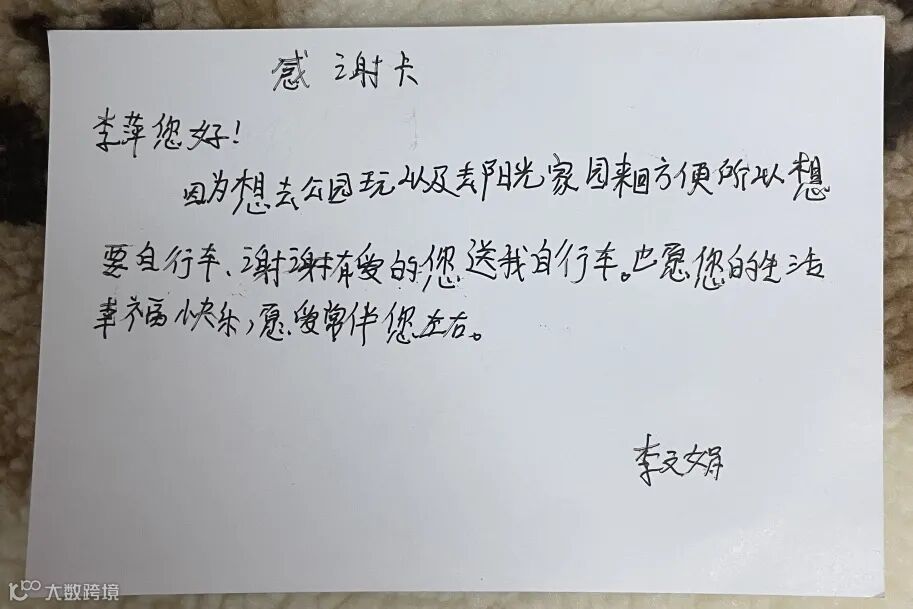 感谢卡
李萍您好!
因为想去公园玩以及去阳光家园来回方便所以想
要自行车、谢谢有爱的您送我自行车。也愿您的生活
幸福快乐,愿爱常伴您左右。
李文娟
大数跨境